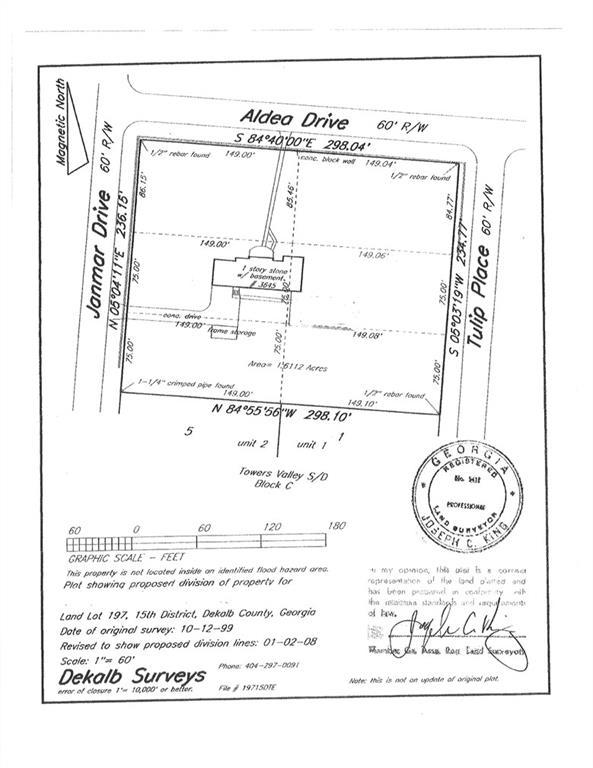 Magnetic North
Aldea Drive 60' R/W
S 84°40'00"E 298.04'
1/2" rebar found
149.00'
conc. block wall
149.04'
1/2" rebar found
Janmar Drive 60' R/W
N 05°04'11"E 236.15'
86.15'
85.46'
84.77'
S 05°03'19"W 234.77'
Tulip Place 60' R/W
149.00'
149.06'
1 story stone
w/ basement
# 3645
75.00'
75.00'
75.00'
conc. drive
149.00'
frame storage
149.08'
75.00'
75.00'
75.00'
Area= 1.6112 Acres
1-1/4" crimped pipe found
149.00'
1/2" rebar found
149.10'
N 84°55'56"W 298.10'
5
unit 2
unit 1
1
Towers Valley S/D
Block C
GEORGIA
REGISTERED
No.
PROFESSIONAL
LAND SURVEYOR
JOSEPH C. KING
60 0 60 120 180
GRAPHIC SCALE - FEET
This property is not located inside an identified flood hazard area.
Plat showing proposed division of property for
Land Lot 197, 15th District, Dekalb County, Georgia
Date of original survey: 10-12-99
Revised to show proposed division lines: 01-02-08
Scale: 1"= 60'
Dekalb Surveys
Phone: 404-297-0091
error of closure 1'= 10,000' or better.
File # 19715DTE
in my opinion, this plat is a correct
representation of the land platted and
has been prepared in conformity with
the minimum standards and requirements
of law.
Member Ga. Assn. Reg. Land Surveyors
Note: this is not an update of original plat.